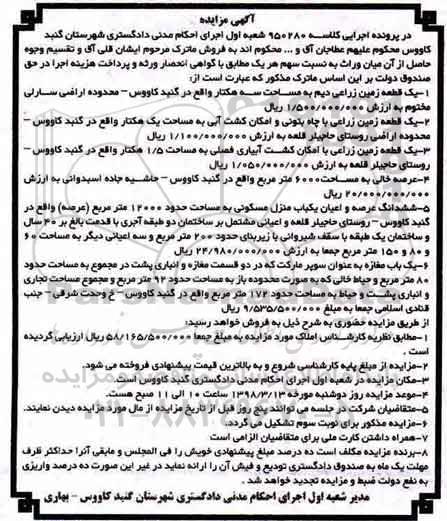 آگهی مزایده
در پرونده اجرایی کلاسه ۹۵۰۲۸۰ شعبه اول اجرای احکام مدنی دادگستری شهرستان گنبد
کاووس محکوم علیهم عطاجان آق و ... محکوم اند به فروش ماترک مرحوم ایشان قلی آق و تقسیم وجوه
حاصل از آن میان وراث به نسبت سهم هر یک مطابق با گواهی انحصار ورثه و پرداخت هزینه اجرا در حق
صندوق دولت بر این اساس ماترک مذکور که عبارت است از:
۱-یک قطعه زمین زراعی دیم به مساحت سه هکتار واقع در گنبد کاووس – محدوده اراضی سارلی
مختوم به ارزش ۱/۵۰۰/۰۰۰/۰۰۰ ریال
۲-یک قطعه زمین زراعی با چاه بتونی و امکان کشت آبی به مساحت یک هکتار واقع در گنبد کاووس –
محدوده اراضی روستای حاجیلر قلعه به ارزش ۱/۱۰۰/۰۰۰/۰۰۰ ریال
۳-یک قطعه زمین زراعی با امکان کشت آبیاری فصلی به مساحت ۱/۵ هکتار واقع در گنبد کاووس –
روستای حاجیلر قلعه به ارزش ۱/۰۵۰/۰۰۰/۰۰۰ ریال
۴-عرصه خالی به مساحت ۶۰۰۰ متر مربع واقع در گنبد کاووس – حاشیه جاده اسبدوانی به ارزش
۲۰/۰۰۰/۰۰۰/۰۰۰ ریال
۵-ششدانگ عرصه و اعیان یکباب منزل مسکونی به مساحت حدود ۱۲۰۰۰ متر مربع (عرصه) واقع در
گنبد کاووس – روستای حاجیلر قلعه و اعیانی مشتمل بر ساختمان دو طبقه آجری با قدمت بالغ بر ۴۰ سال
و ساختمان یک طبقه با سقف شیروانی با زیربنای حدود ۲۰۰ متر مربع و سه اعیانی دیگر به مساحت ۶۰
و ۸۰ و ۱۵۰ متر مربع جمعا به ارزش ۲۴/۹۸۰/۰۰۰/۰۰۰ ریال
۶-یک باب مغازه به عنوان سوپر مارکت که در دو قسمت مغازه و انباری پشت در مجموع به مساحت حدود
۸۰ متر مربع و حیاط خالی که به صورت محدوده باز به مساحت حدود ۹۲ متر مربع و مجموع مساحت تجاری
و انباری پشت و حیاط به مساحت حدود ۱۷۲ متر مربع واقع در گنبد کاووس – خ وحدت شرقی – جنب
قنادی اسلامی جمعا به مبلغ ۹/۵۳۵/۵۰۰/۰۰۰ ریال
از طریق مزایده حضوری به شرح ذیل به فروش خواهد رسید:
۱-مطابق نظریه کارشناس املاک مورد مزایده به مبلغ جمعا ۵۸/۱۶۵/۵۰۰/۰۰۰ ریال ارزیابی گردیده
است .
۲-مزایده از مبلغ پایه کارشناسی شروع و به بالاترین قیمت پیشنهادی فروخته می شود.
۳-مکان مزایده در شعبه اول اجرای احکام مدنی دادگستری گنبد کاووس است.
۴-موعد مزایده روز دوشنبه مورخه ۱۳۹۸/۳/۱۳ ساعت ۱۰ الی ۱۱ صبح هست.
۵-متقاضیان شرکت در جلسه می توانند پنج روز قبل از تاریخ مزایده از مال مورد مزایده دیدن نمایند.
۶-مزایده مذکور برای نوبت سوم تشکیل می گردد.
۷-همراه داشتن کارت ملی برای متقاضیان الزامی است
۸-برنده مزایده مکلف است ده درصد مبلغ پیشنهادی خویش را فی المجلس و مابقی آنرا حداکثر ظرف
مهلت یک ماه به صندوق دادگستری تودیع و فیش آن را ارائه نماید در غیر این صورت ده درصد واریزی
به نفع دولت ضبط و مزایده تجدید خواهد شد .
مدیر شعبه اول اجرای احکام مدنی دادگستری شهرستان گنبد کاووس – بهاری